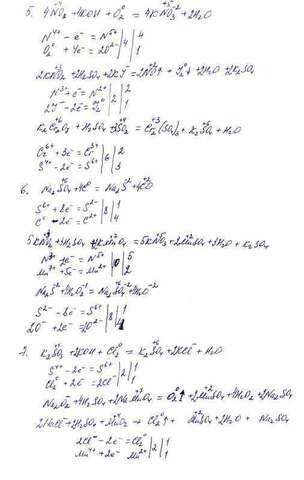 5. 4NO₂ + 4KOH + O₂⁰ = 4KNO₃ + 2H₂O
N⁺⁴ - e⁻ = N⁺⁵ | 4
O₂⁰ + 4e⁻ = 2O²⁻ | 4 | 1
2KNO₂ + 2H₂SO₄ + 2KJ⁻ = 2NO↑ + J₂⁰↓ + 2H₂O + 2K₂SO₄
N³⁺ + e⁻ = N²⁺ | 2 | 2
2J⁻ - 2e⁻ = J₂⁰ | 1
K₂Cr₂O₇ + H₂SO₄ + 3SO₂ = Cr₂(SO₄)₃ + K₂SO₄ + H₂O
Cr⁶⁺ + 3e⁻ = Cr³⁺ | 6 | 2
S⁴⁺ - 2e⁻ = S⁶⁺ | 3
6. Na₂SO₄ + 4C⁰ = Na₂S²⁻ + 4CO
S⁶⁺ + 8e⁻ = S²⁻ | 8 | 1
C⁰ - 2e⁻ = C²⁺ | 4
5KNO₂ + 3H₂SO₄ + 2KMnO₄ = 5KNO₃ + 2MnSO₄ + 3H₂O + K₂SO₄
N³⁺ - 2e⁻ = N⁵⁺ | 10 | 5
Mn⁷⁺ + 5e⁻ = Mn²⁺ | 2
Na₂S²⁻ + 4H₂O₂⁻¹ = Na₂SO₄ + 4H₂O⁻²
S²⁻ - 8e⁻ = S⁶⁺ | 8 | 1
7. K₂SO₃ + 2KOH + Cl₂⁰ = K₂SO₄ + 2KCl⁻ + H₂O
S⁴⁺ - 2e⁻ = S⁶⁺ | 2 | 1
Cl₂⁰ + 2e⁻ = 2Cl⁻ | 1
2NaCl + 2H₂SO₄ + MnO₂ → Cl₂⁰↑ + MnSO₄ + 2H₂O + Na₂SO₄
2Cl⁻ - 2e⁻ = Cl₂⁰ | 2 | 1
Mn⁴⁺ + 2e⁻ Mn²⁺ | 1